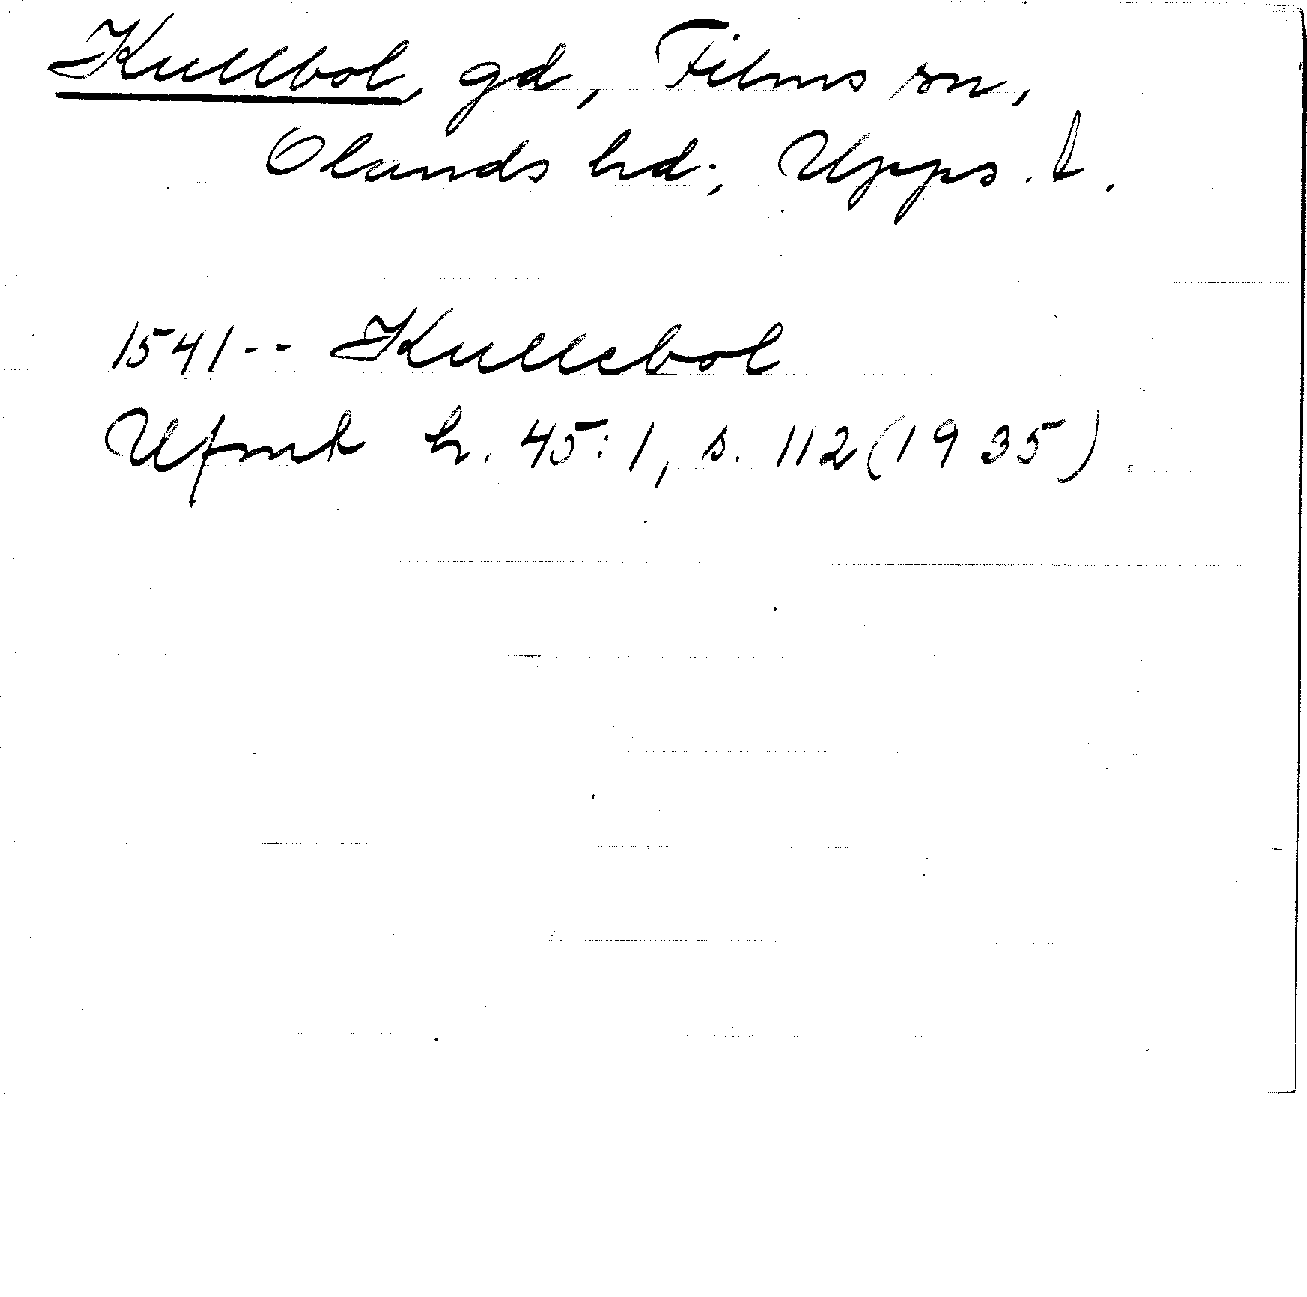 Kullbol, gd, Films sn,
Olands hd; Upps. l.
1541-- Kullebol
Ufmt h. 45:1, s. 112 (1935)